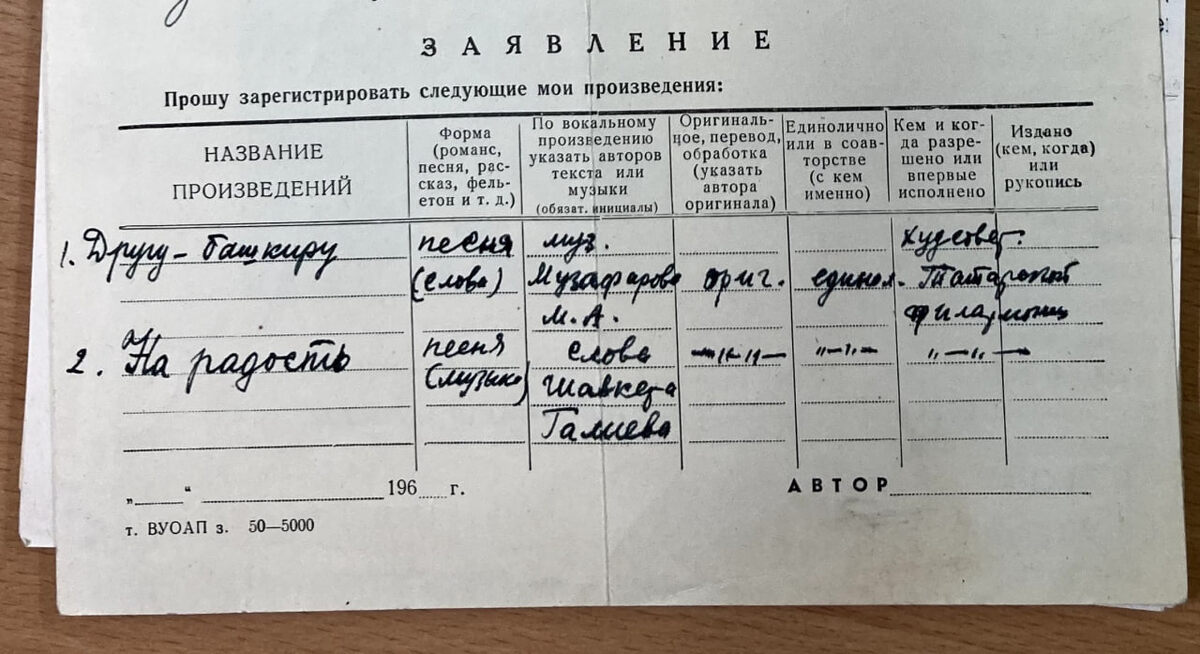 ЗАЯВЛЕНИЕ
Прошу зарегистрировать следующие мои произведения:
НАЗВАНИЕ ПРОИЗВЕДЕНИЙ
Форма (романс, песня, рас- сказ, фель- етон и т. д.)
По вокальному произведению указать авторов текста или музыки (обязат. инициалы)
Оригиналь- ное, перевод, обработка (указать автора оригинала)
Единолично или в соав- торстве (с кем именно)
Кем и ког- да разре- шено или впервые исполнено
Издано (кем, когда) или рукопись
1. Другу-башкиру песня муз. Худсовет.
(слова) Музафарова ориг. единол. Татарской
М. А. филармонии
2. На радость песня слова —"—"— "—"— "—"—
(музыка) Шавкета
Галиева
„ “ 196 г. АВТОР
т. ВУОАП з. 50—5000